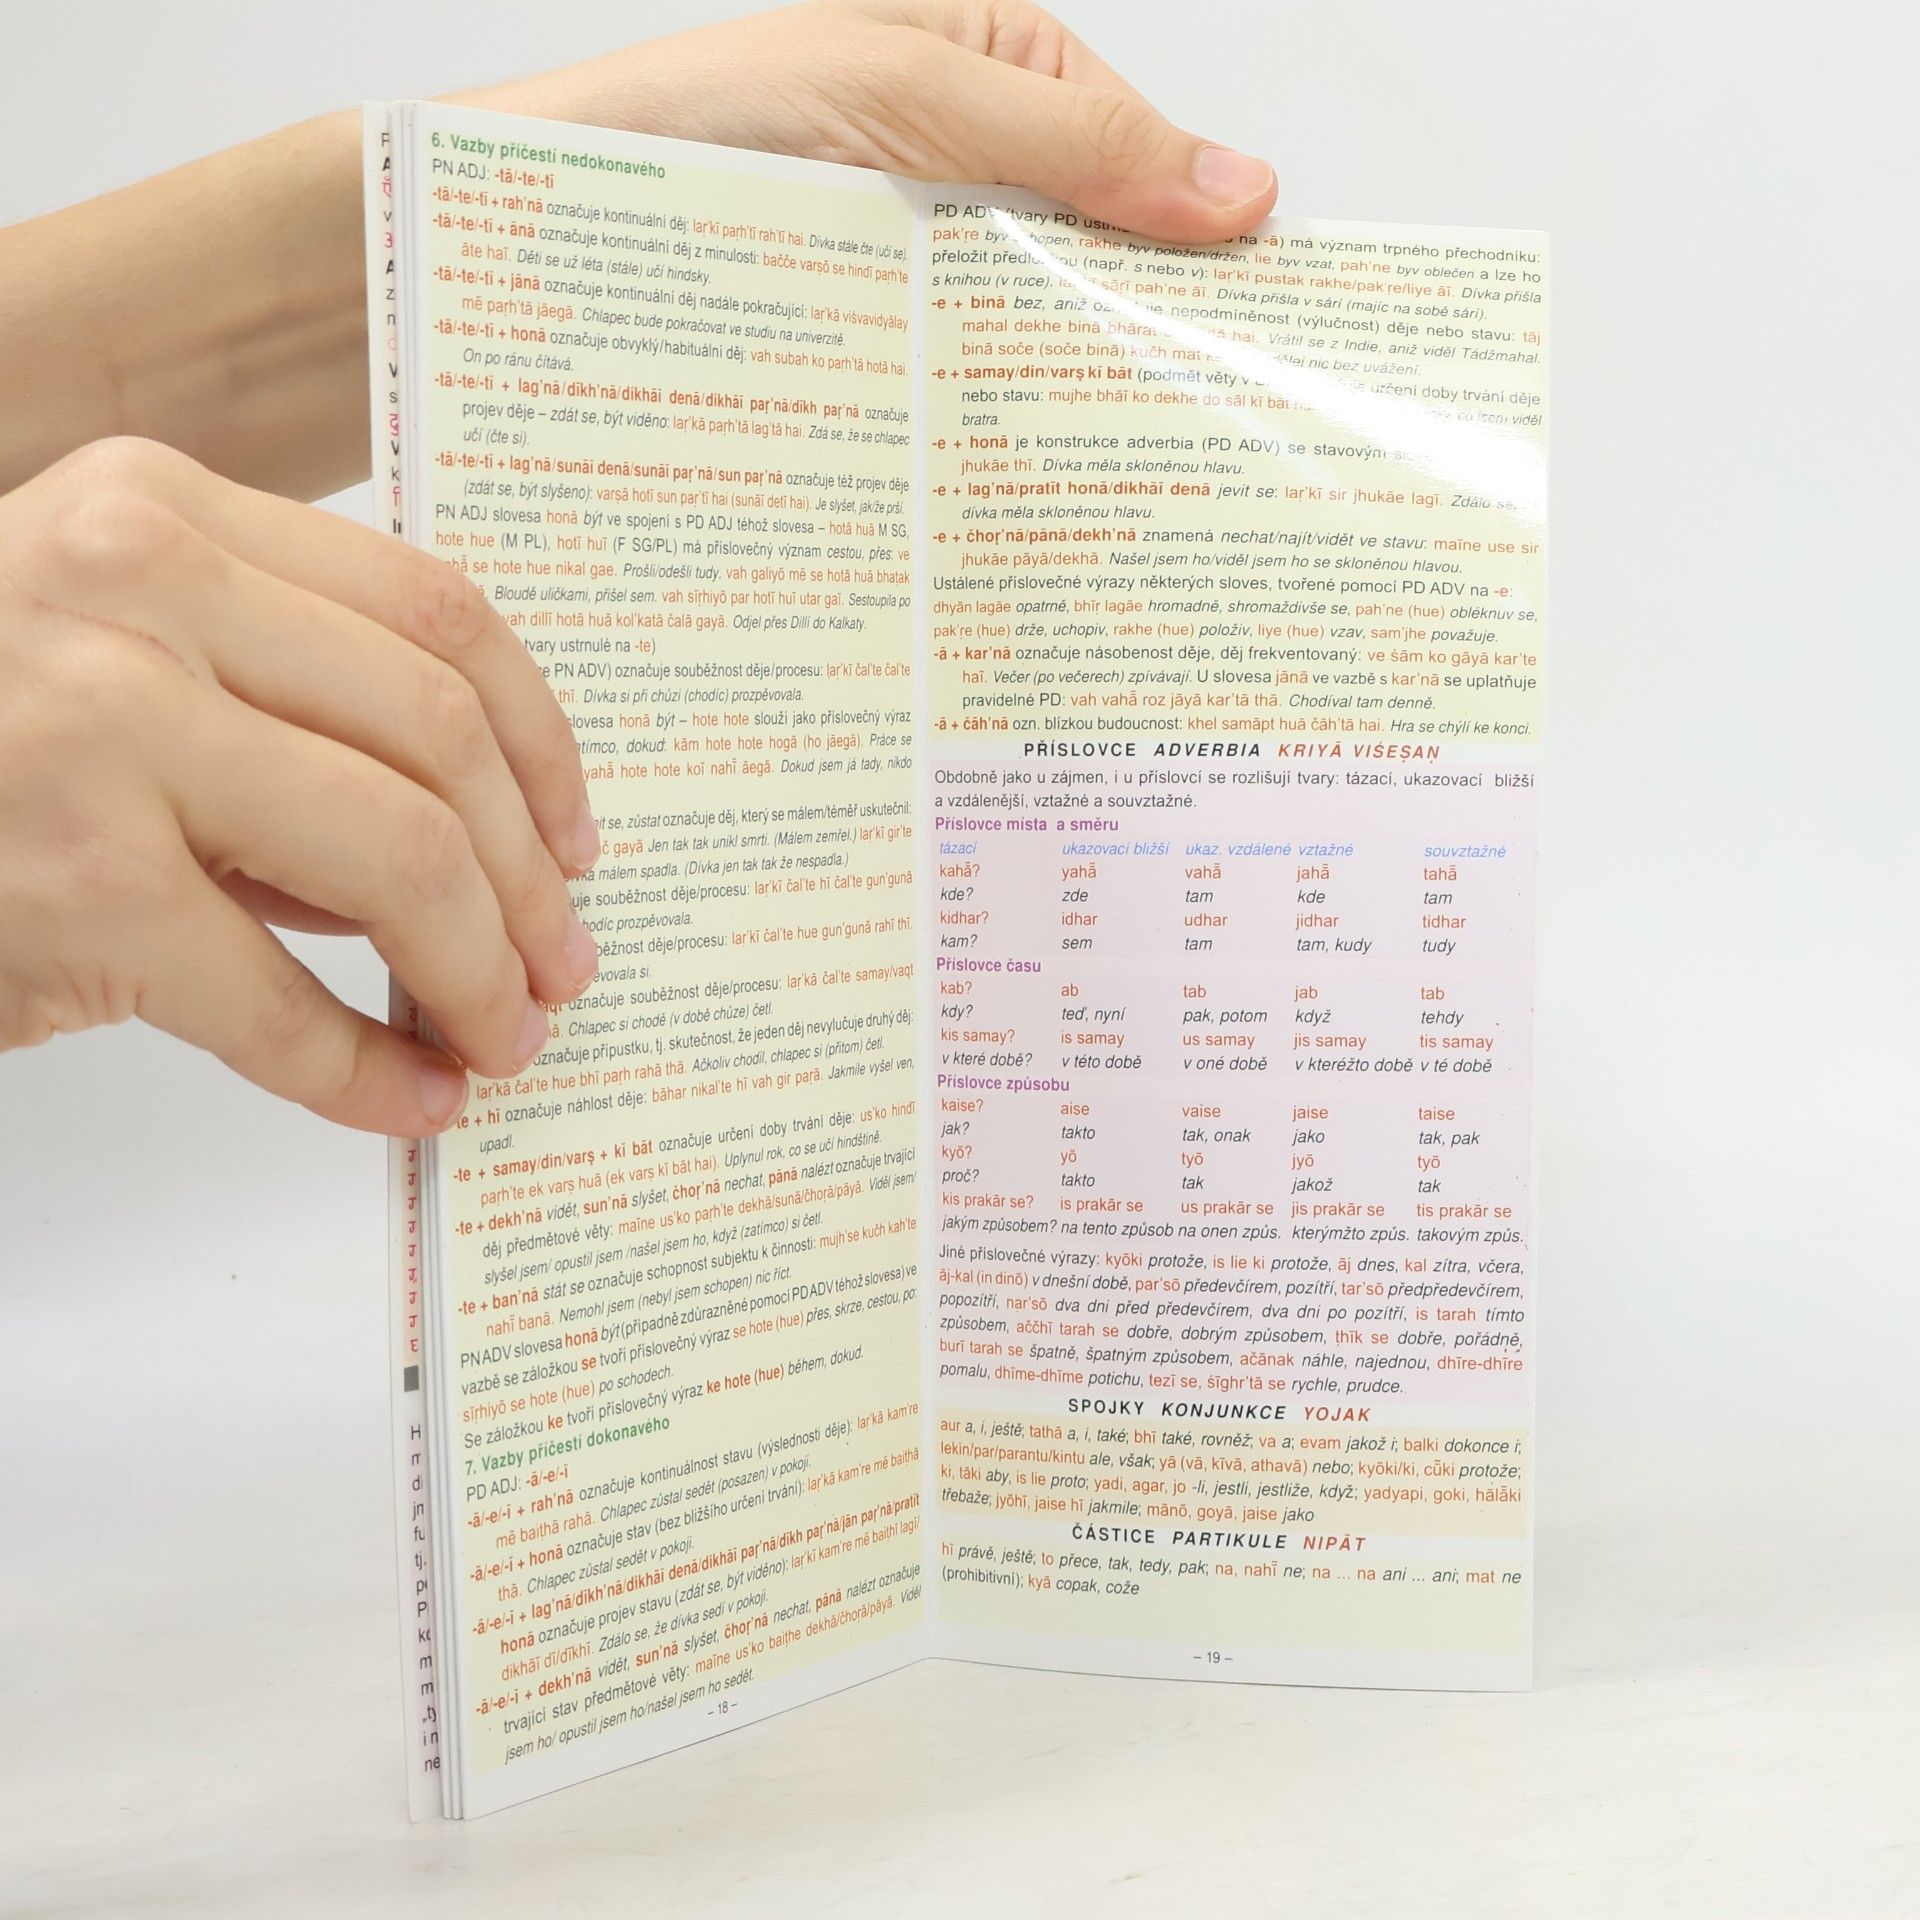 6. Vazby příčestí nedokonavého
PN ADJ: -tā/-te/-tī
-tā/-te/-tī + rah'nā označuje kontinuální děj: laṛ'kī paṛh'tī rah'tī hai. Dívka stále čte (učí se).
-tā/-te/-tī + ānā označuje kontinuální děj z minulosti: bačče varṣõ se hindī paṛh'te
āte haĩ. Děti se už léta (stále) učí hindsky.
-tā/-te/-tī + jānā označuje kontinuální děj nadále pokračující: laṛ'kā viśvavidyālay
mẽ paṛh'tā jāegā. Chlapec bude pokračovat ve studiu na univerzitě.
-tā/-te/-tī + honā označuje obvyklý/habituální děj: vah subah ko paṛh'tā hotā hai.
On po ránu čítává.
-tā/-te/-tī + lag'nā/dīkh'nā/dikhāī denā/dikhāī paṛ'nā/dīkh paṛ'nā označuje
projev děje – zdát se, být viděno: laṛ'kā paṛh'tā lag'tā hai. Zdá se, že se chlapec
učí (čte si).
-tā/-te/-tī + lag'nā/sunāī denā/sunāī paṛ'nā/sun paṛ'nā označuje též projev děje
(zdát se, být slyšeno): varṣā hotī sun paṛ'tī hai (sunāī detī hai). Je slyšet, jak/že prší.
PN ADJ slovesa honā být ve spojení s PD ADJ téhož slovesa – hotā huā M SG,
hote hue (M PL), hotī huī (F SG/PL) má příslovečný význam cestou, přes: ve
se hote hue nikal gae. Prošli/odešli tudy. vah galiyõ mẽ se hotā huā bhaṭak
Bloudě uličkami, přišel sem. vah sīṛhiyõ par hotī huī utar gaī. Sestoupila po
vah dillī hotā huā kol'katā čalā gayā. Odjel přes Dillí do Kalkaty.
tvary ustrnulé na -te)
PN ADV) označuje souběžnost děje/procesu: laṛ'kī čal'te čal'te
thī. Dívka si při chůzi (chodíc) prozpěvovala.
slovesa honā být – hote hote slouží jako příslovečný výraz
zatímco, dokud: kām hote hote hogā (ho jāegā). Práce se
yahā̃ hote hote koī nahī̃ āegā. Dokud jsem já tady, nikdo
se, zůstat označuje děj, který se málem/téměř uskutečnil:
gayā Jen tak tak unikl smrti. (Málem zemřel.) laṛ'kī gir'te
málem spadla. (Dívka jen tak tak že nespadla.)
souběžnost děje/procesu: laṛ'kī čal'te hī čal'te gun'gunā
prozpěvovala.
děje/procesu: laṛ'kī čal'te hue gun'gunā rahī thī.
si.
označuje souběžnost děje/procesu: laṛ'kā čal'te samay/vaqt
Chlapec si chodě (v době chůze) četl.
označuje přípustku, tj. skutečnost, že jeden děj nevylučuje druhý děj:
laṛ'kā čal'te hue bhī paṛh rahā thā. Ačkoliv chodil, chlapec si (přitom) četl.
-te + hī označuje náhlost děje: bāhar nikal'te hī vah gir paṛā. Jakmile vyšel ven,
upadl.
-te + samay/din/varṣ + kī bāt označuje určení doby trvání děje: us'ko hindī
paṛh'te ek varṣ huā (ek varṣ kī bāt hai). Uplynul rok, co se učí hindštině.
-te + dekh'nā vidět, sun'nā slyšet, čhoṛ'nā nechat, pānā nalézt označuje trvající
děj předmětové věty: maĩne us'ko paṛh'te dekhā/sunā/čhoṛā/pāyā. Viděl jsem/
slyšel jsem/ opustil jsem /našel jsem ho, když (zatímco) si četl.
-te + ban'nā stát se označuje schopnost subjektu k činnosti: mujh'se kučh kah'te
nahī̃ banā. Nemohl jsem (nebyl jsem schopen) nic říct.
PN ADV slovesa honā být (případně zdůrazněné pomocí PD ADV téhož slovesa) ve
vazbě se záložkou se tvoří příslovečný výraz se hote (hue) přes, skrze, cestou, po:
sīṛhiyõ se hote (hue) po schodech.
Se záložkou ke tvoří příslovečný výraz ke hote (hue) během, dokud.
7. Vazby příčestí dokonavého
PD ADJ: -ā/-e/-ī
-ā/-e/-ī + rah'nā označuje kontinuálnost stavu (výslednosti děje): laṛ'kā kam're
mẽ baiṭhā rahā. Chlapec zůstal sedět (posazen) v pokoji.
-ā/-e/-ī + honā označuje stav (bez bližšího určení trvání): laṛ'kā kam're mẽ baiṭhā
thā. Chlapec zůstal sedět v pokoji.
-ā/-e/-ī + lag'nā/dīkh'nā/dikhāī denā/dikhāī paṛ'nā/dīkh paṛ'nā/jān paṛ'nā/pratīt
honā označuje projev stavu (zdát se, být viděno): laṛ'kī kam're mẽ baiṭhī lagī/
dikhāī dī/dīkhī. Zdálo se, že dívka sedí v pokoji.
-ā/-e/-ī + dekh'nā vidět, sun'nā slyšet, čhoṛ'nā nechat, pānā nalézt označuje
trvající stav předmětové věty: maĩne us'ko baiṭhe dekhā/čhoṛā/pāyā. Viděl
jsem ho/ opustil jsem ho/našel jsem ho sedět.
– 18 –
PD ADV (tvary PD na -ā) má význam trpného přechodníku:
pak'ṛe byv rakhe byv položen/držen, lie byv vzat, pah'ne byv oblečen a lze ho
přeložit (např. s nebo v): laṛ'kī pustak rakhe/pak'ṛe/liye āī. Dívka přišla
s knihou (v ruce). sāṛī pah'ne āī. Dívka přišla v sárí (majíc na sobě sárí).
-e + binā bez, aniž nepodmíněnost (výlučnost) děje nebo stavu: tāj
mahal dekhe binā bhārat hai. Vrátil se z Indie, aniž viděl Tádžmahal.
binā soče (soče binā) kučh mat nic bez uvážení.
-e + samay/din/varṣ kī bāt (podmět věty v určení doby trvání děje
nebo stavu: mujhe bhāī ko dekhe do sāl kī bāt co jsem viděl
bratra.
-e + honā je konstrukce adverbia (PD ADV) se stavovým
jhukāe thī. Dívka měla skloněnou hlavu.
-e + lag'nā/pratīt honā/dikhāī denā jevit se: laṛ'kī sir jhukāe lagī. Zdálo se,
dívka měla skloněnou hlavu.
-e + čhoṛ'nā/pānā/dekh'nā znamená nechat/najít/vidět ve stavu: maĩne use sir
jhukāe pāyā/dekhā. Našel jsem ho/viděl jsem ho se skloněnou hlavou.
Ustálené příslovečné výrazy některých sloves, tvořené pomocí PD ADV na -e:
dhyān lagāe opatrně, bhīṛ lagāe hromadně, shromaždivše se, pah'ne (hue) obléknuv se,
pak'ṛe (hue) drže, uchopiv, rakhe (hue) položiv, liye (hue) vzav, sam'jhe považuje.
-ā + kar'nā označuje násobenost děje, děj frekventovaný: ve śām ko gāyā kar'te
haĩ. Večer (po večerech) zpívávají. U slovesa jānā ve vazbě s kar'nā se uplatňuje
pravidelné PD: vah vahā̃ roz jāyā kar'tā thā. Chodíval tam denně.
-ā + čāh'nā ozn. blízkou budoucnost: khel samāpt huā čāh'tā hai. Hra se chýlí ke konci.
PŘÍSLOVCE ADVERBIA KRIYĀ VIŚEṢAṆ
Obdobně jako u zájmen, i u příslovcí se rozlišují tvary: tázací, ukazovací bližší
a vzdálenější, vztažné a souvztažné.
Příslovce místa a směru
tázací ukazovací bližší ukaz. vzdálené vztažné souvztažné
kahā̃? yahā̃ vahā̃ jahā̃ tahā̃
kde? zde tam kde tam
kidhar? idhar udhar jidhar tidhar
kam? sem tam tam, kudy tudy
Příslovce času
kab? ab tab jab tab
kdy? teď, nyní pak, potom když tehdy
kis samay? is samay us samay jis samay tis samay
v které době? v této době v oné době v kteréžto době v té době
Příslovce způsobu
kaise? aise vaise jaise taise
jak? takto tak, onak jako tak, pak
kyõ? yõ tyõ jyõ tyõ
proč? takto tak jakož tak
kis prakār se? is prakār se us prakār se jis prakār se tis prakār se
jakým způsobem? na tento způsob na onen způs. kterýmžto způs. takovým způs.
Jiné příslovečné výrazy: kyõki protože, is lie ki protože, āj dnes, kal zítra, včera,
āj-kal (in dinõ) v dnešní době, par'sõ předevčírem, pozítří, tar'sõ předpředevčírem,
popozítří, nar'sõ dva dni před předevčírem, dva dni po pozítří, is tarah tímto
způsobem, aččhī tarah se dobře, dobrým způsobem, ṭhīk se dobře, pořádně,
burī tarah se špatně, špatným způsobem, ačānak náhle, najednou, dhīre-dhīre
pomalu, dhīme-dhīme potichu, tezī se, śīghr'tā se rychle, prudce.
SPOJKY KONJUNKCE YOJAK
aur a, i, ještě; tathā a, i, také; bhī také, rovněž; va a; evam jakož i; balki dokonce i;
lekin/par/parantu/kintu ale, však; yā (vā, kĩvā, athavā) nebo; kyõki/ki, cū̃ki protože;
ki, tāki aby, is lie proto; yadi, agar, jo -li, jestli, jestliže, když; yadyapi, goki, hālā̃ki
třebaže; jyõhī, jaise hī jakmile; mānõ, goyā, jaise jako
ČÁSTICE PARTIKULE NIPĀT
hī právě, ještě; to přece, tak, tedy, pak; na, nahī̃ ne; na ... na ani ... ani; mat ne
(prohibitivní); kyā copak, cože
– 19 –